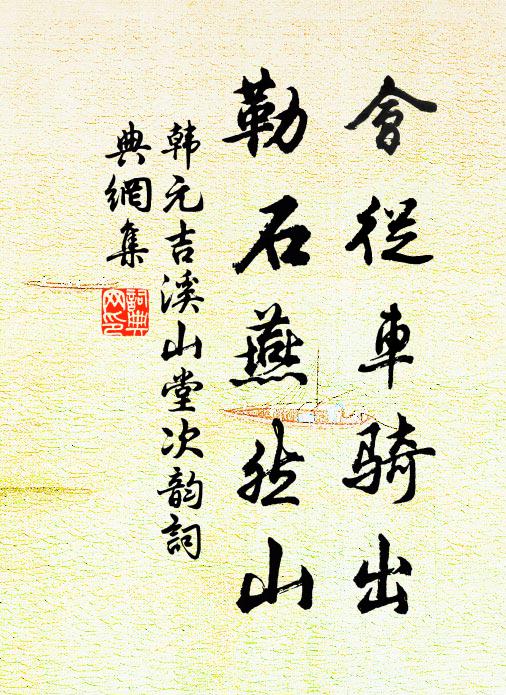 會從車騎出
勒石燕然山
韩元吉溪山堂次韵詞
典網集
詞典
网印